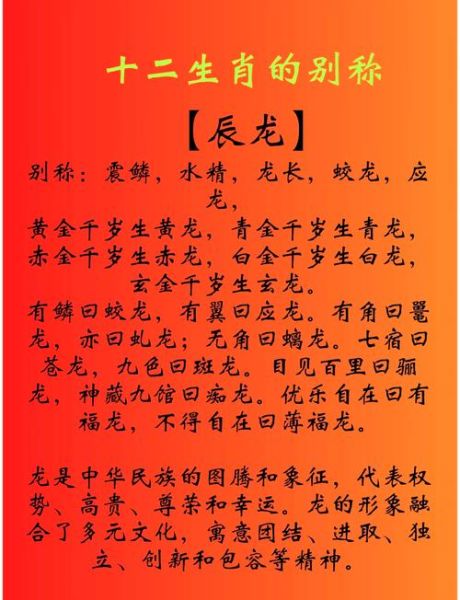 十二生肖的别称
【辰龙】
别称：震鳞，水精，龙长，蛟龙，应
龙，
黄金千岁生黄龙，青金千岁生青龙，
赤金千岁生赤龙，白金千岁生白龙，
玄金千岁生玄龙。
有鳞曰蛟龙，有翼曰应龙。有角曰鼍
龙，亦曰虬龙；无角曰螭龙。七宿曰
苍龙，九色曰斑龙。目见百里曰骊
龙，神藏九馆曰痴龙。优乐自在曰有
福龙，不得自在曰薄福龙。
龙是中华民族的图腾和象征，代表权
势、高贵、尊荣和幸运。龙的形象融
合了多元文化，寓意团结、进取、独
立、创新和包容等精神。